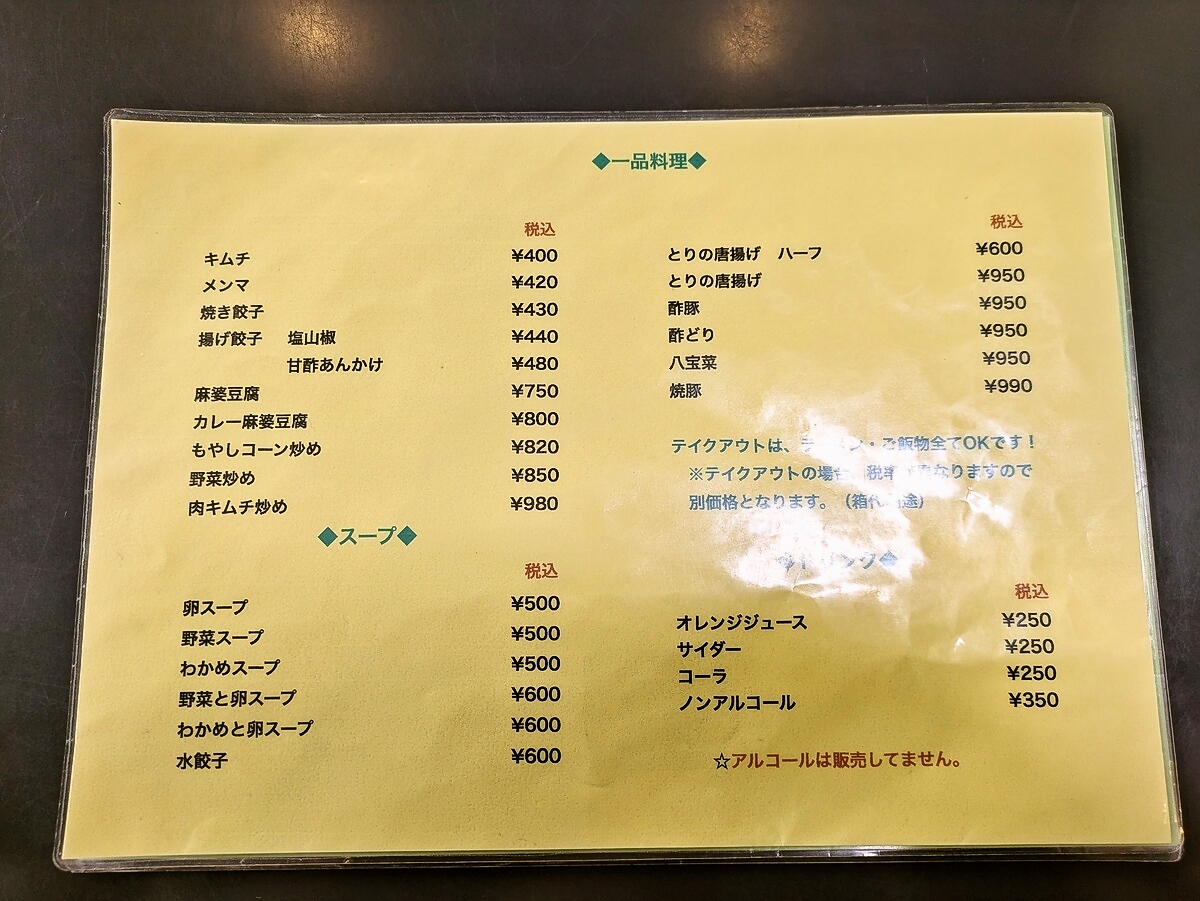 ◆一品料理◆
税込
キムチ ¥400
メンマ ¥420
焼き餃子 ¥430
揚げ餃子 塩山椒 ¥440
甘酢あんかけ ¥480
麻婆豆腐 ¥750
カレー麻婆豆腐 ¥800
もやしコーン炒め ¥820
野菜炒め ¥850
肉キムチ炒め ¥980
◆スープ◆
税込
卵スープ ¥500
野菜スープ ¥500
わかめスープ ¥500
野菜と卵スープ ¥600
わかめと卵スープ ¥600
水餃子 ¥600
税込
とりの唐揚げ ハーフ ¥600
とりの唐揚げ ¥950
酢豚 ¥950
酢どり ¥950
八宝菜 ¥950
焼豚 ¥990
テイクアウトは、ラーメン・ご飯物全てOKです！
※テイクアウトの場合 税率 なりますので
別価格となります。（箱代別途）
◆ドリンク◆
税込
オレンジジュース ¥250
サイダー ¥250
コーラ ¥250
ノンアルコール ¥350
☆アルコールは販売してません。